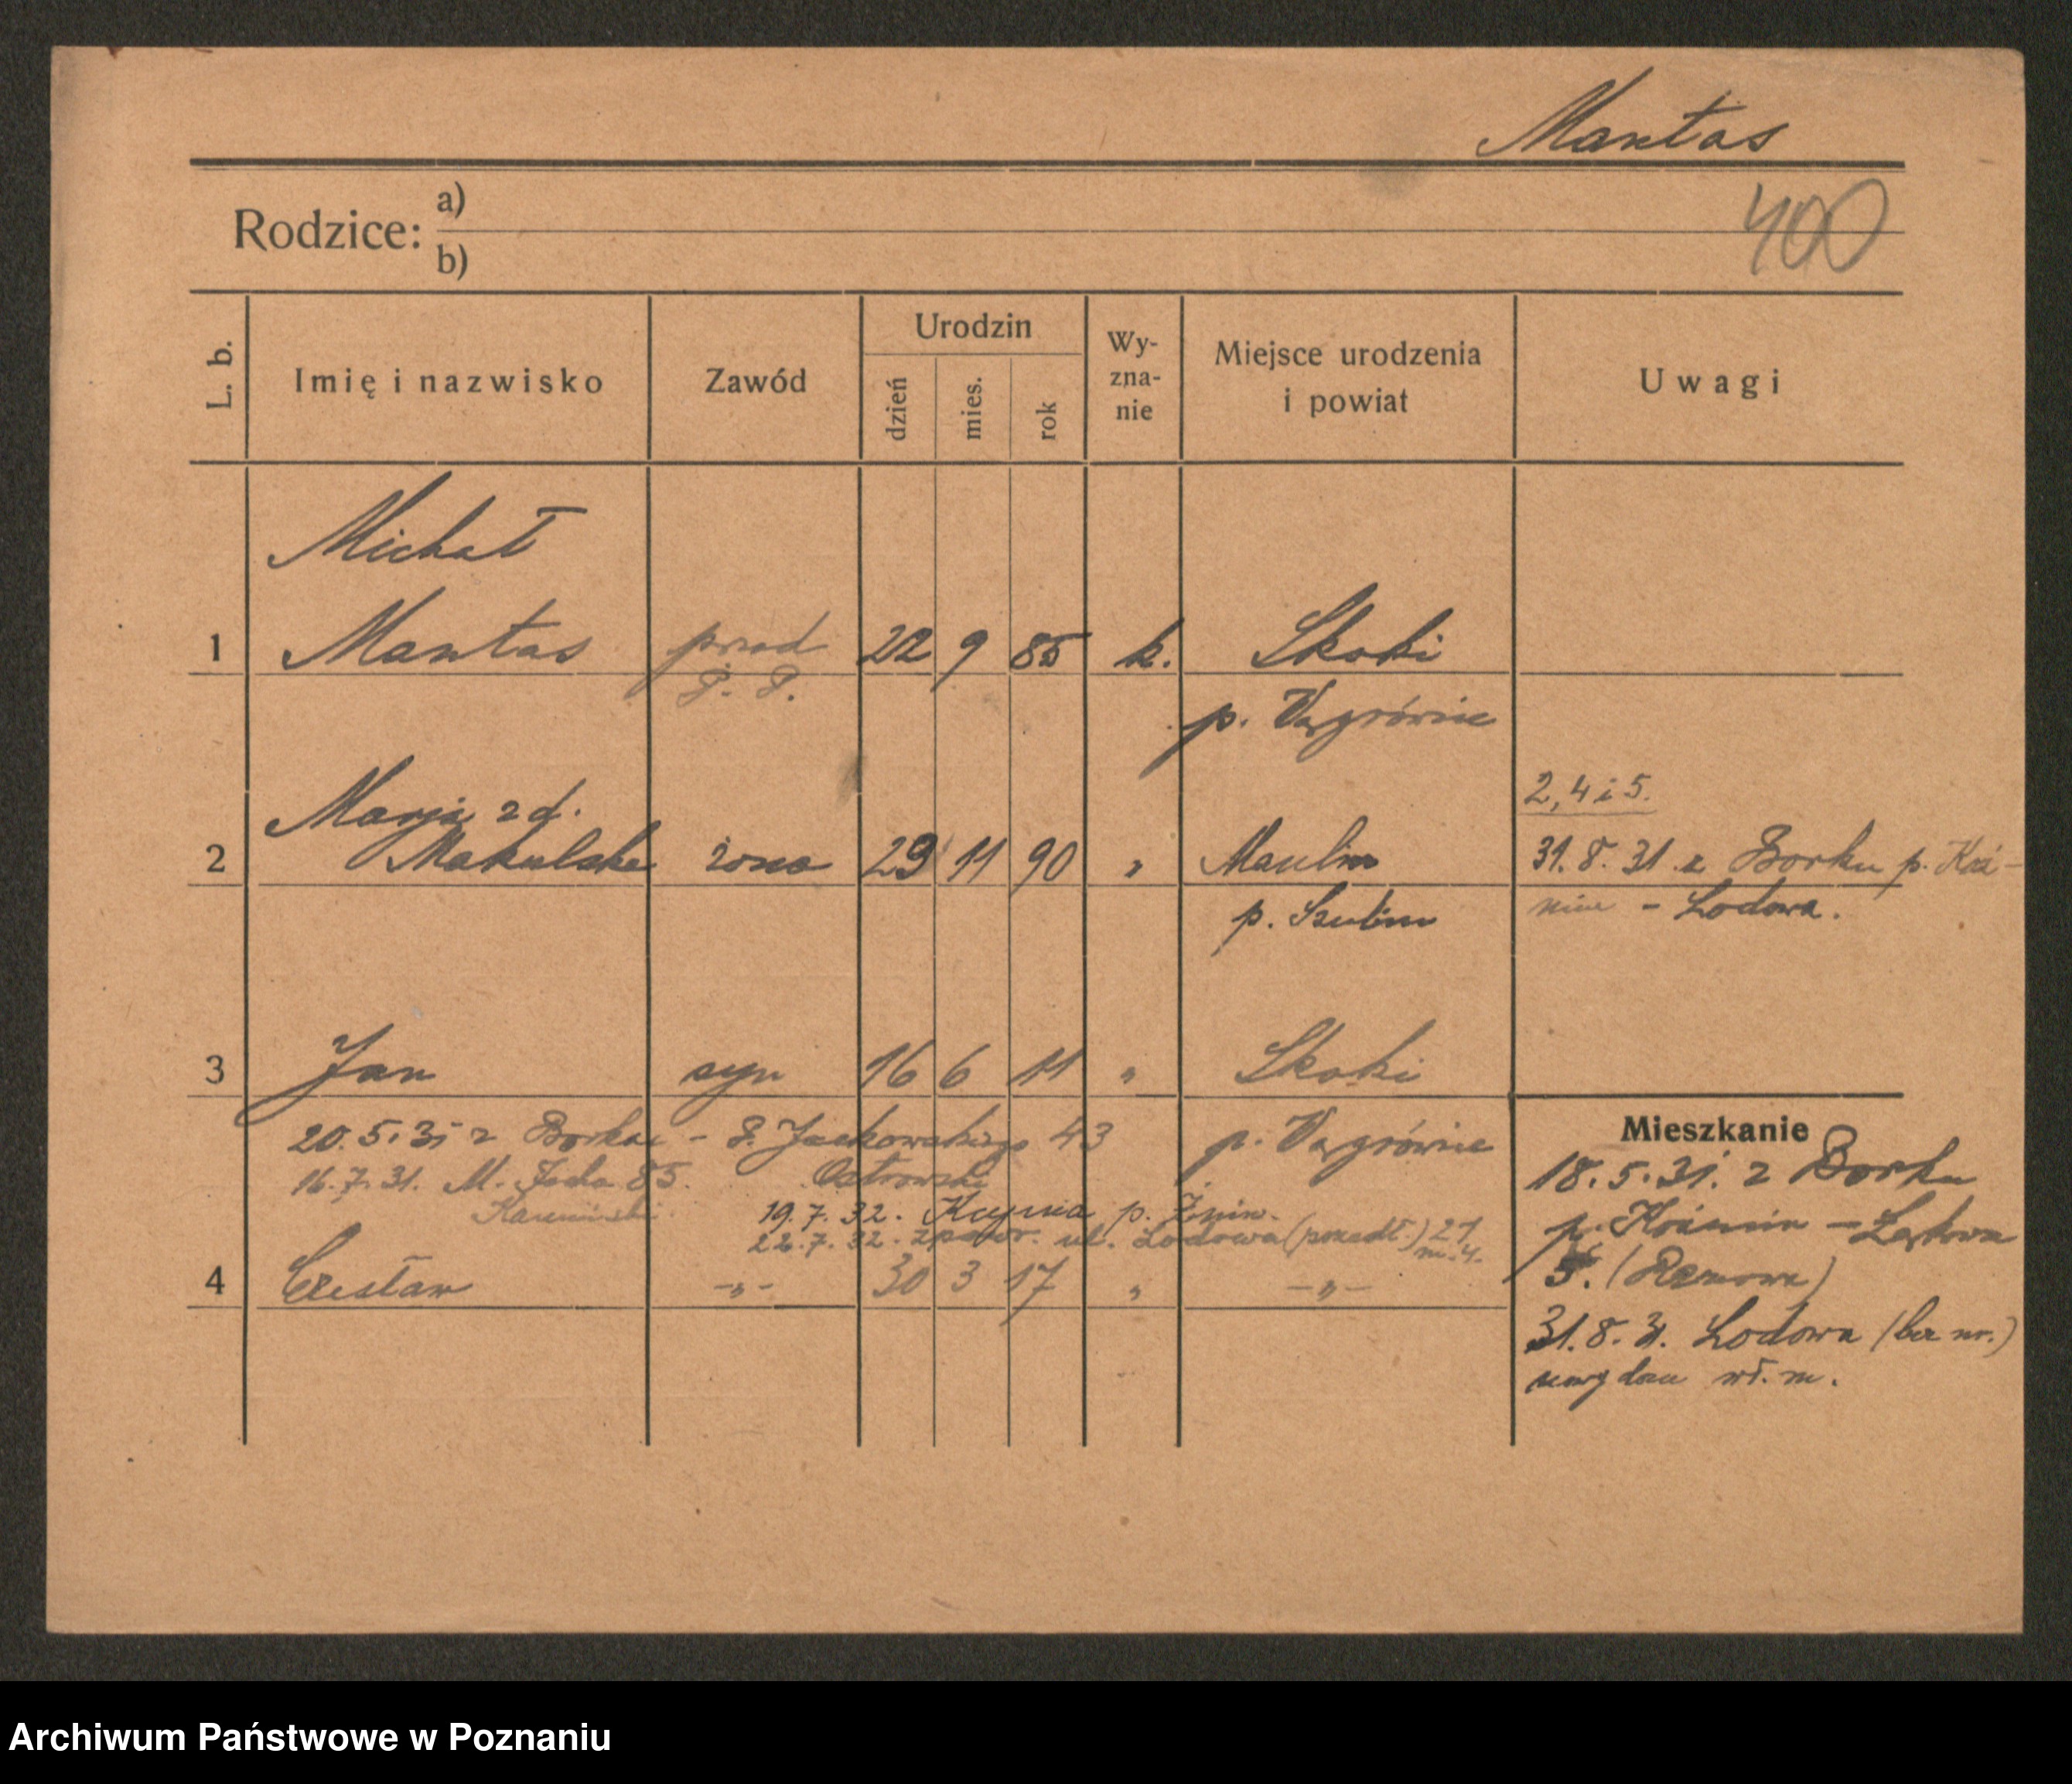 Mantas
400
Rodzice: a)
b)
L. b. Imię i nazwisko Zawód Urodzin dzień mies. rok Wy-zna-nie Miejsce urodzenia i powiat Uwagi
Michał
1 Mantas przod 22 9 85 k. Skoki
P. P. p. Wągrówiec
Marja z d. 2, 4 i 5.
2 Makulska żona 29 11 90 " 31.8.31 z Borku p. Koź-
p. Szubin min - Lodowa.
3 Jan syn 16 6 11 " Skoki
20.5.31 z Borku - S. Jackowskiego 43 p. Wągrówiec
16.7.31. M. Focha 85. Ostrowski
Kamiński. 19.7.32. p. Żnin.
22.7.32. zpowr. ul. Lodowa 21
m. 4.
4 Czesław -"- 30 3 17 " -"-
Mieszkanie
18.5.31. z Borku
p. Koźmin - Łąkowa
5.
31.8.31. Lodowa (bez nr.)
nowy dom wł. m.
Archiwum Państwowe w Poznaniu